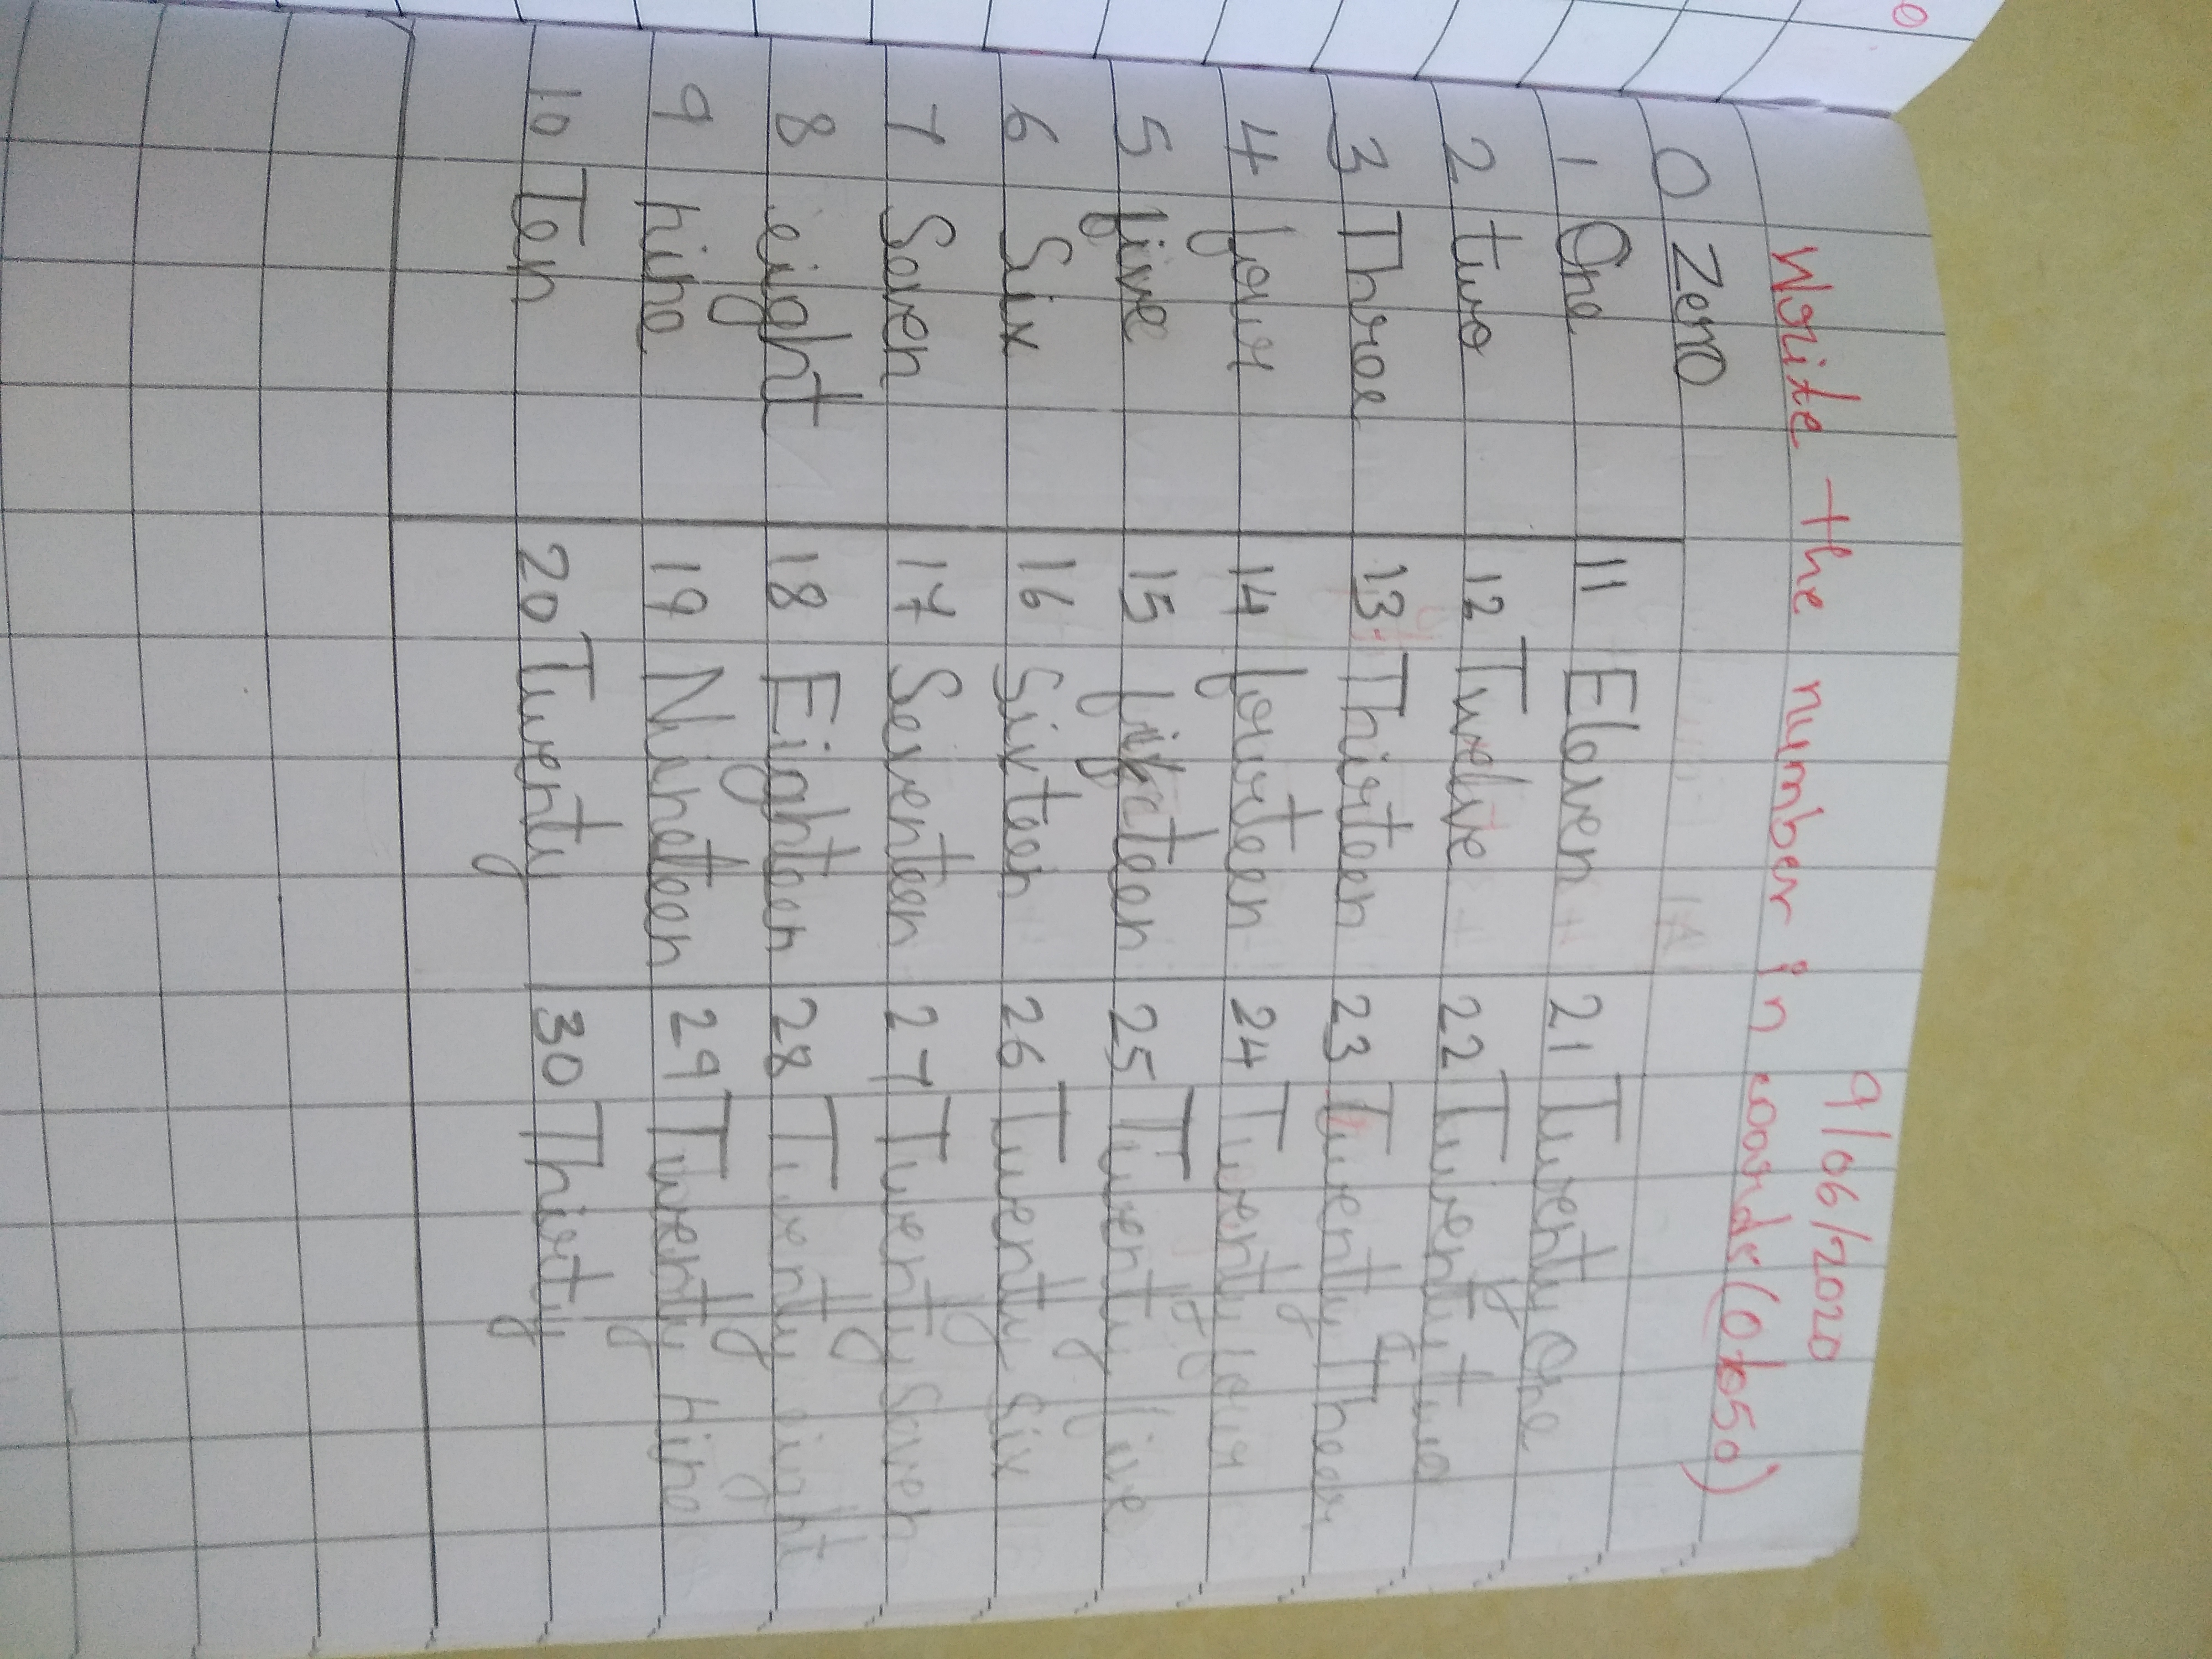 9/06/2020
Write the number in words (0 to 50)
0 Zero
1 One 11 Eleven 21 Twenty One
2 two 12 Twelve 22 Twenty two
3 Three 13 Thirteen 23 Twenty Theer
4 four 14 fourteen 24 Twenty four
5 five 15 fifteen 25 Twenty five
6 Six 16 Sixteen 26 Twenty Six
7 Seven 17 Seventeen 27 Twenty Seven
8 eight 18 Eighteen 28 Twenty eight
9 nine 19 Nineteen 29 Twenty nine
10 Ten 20 Twenty 30 Thirty